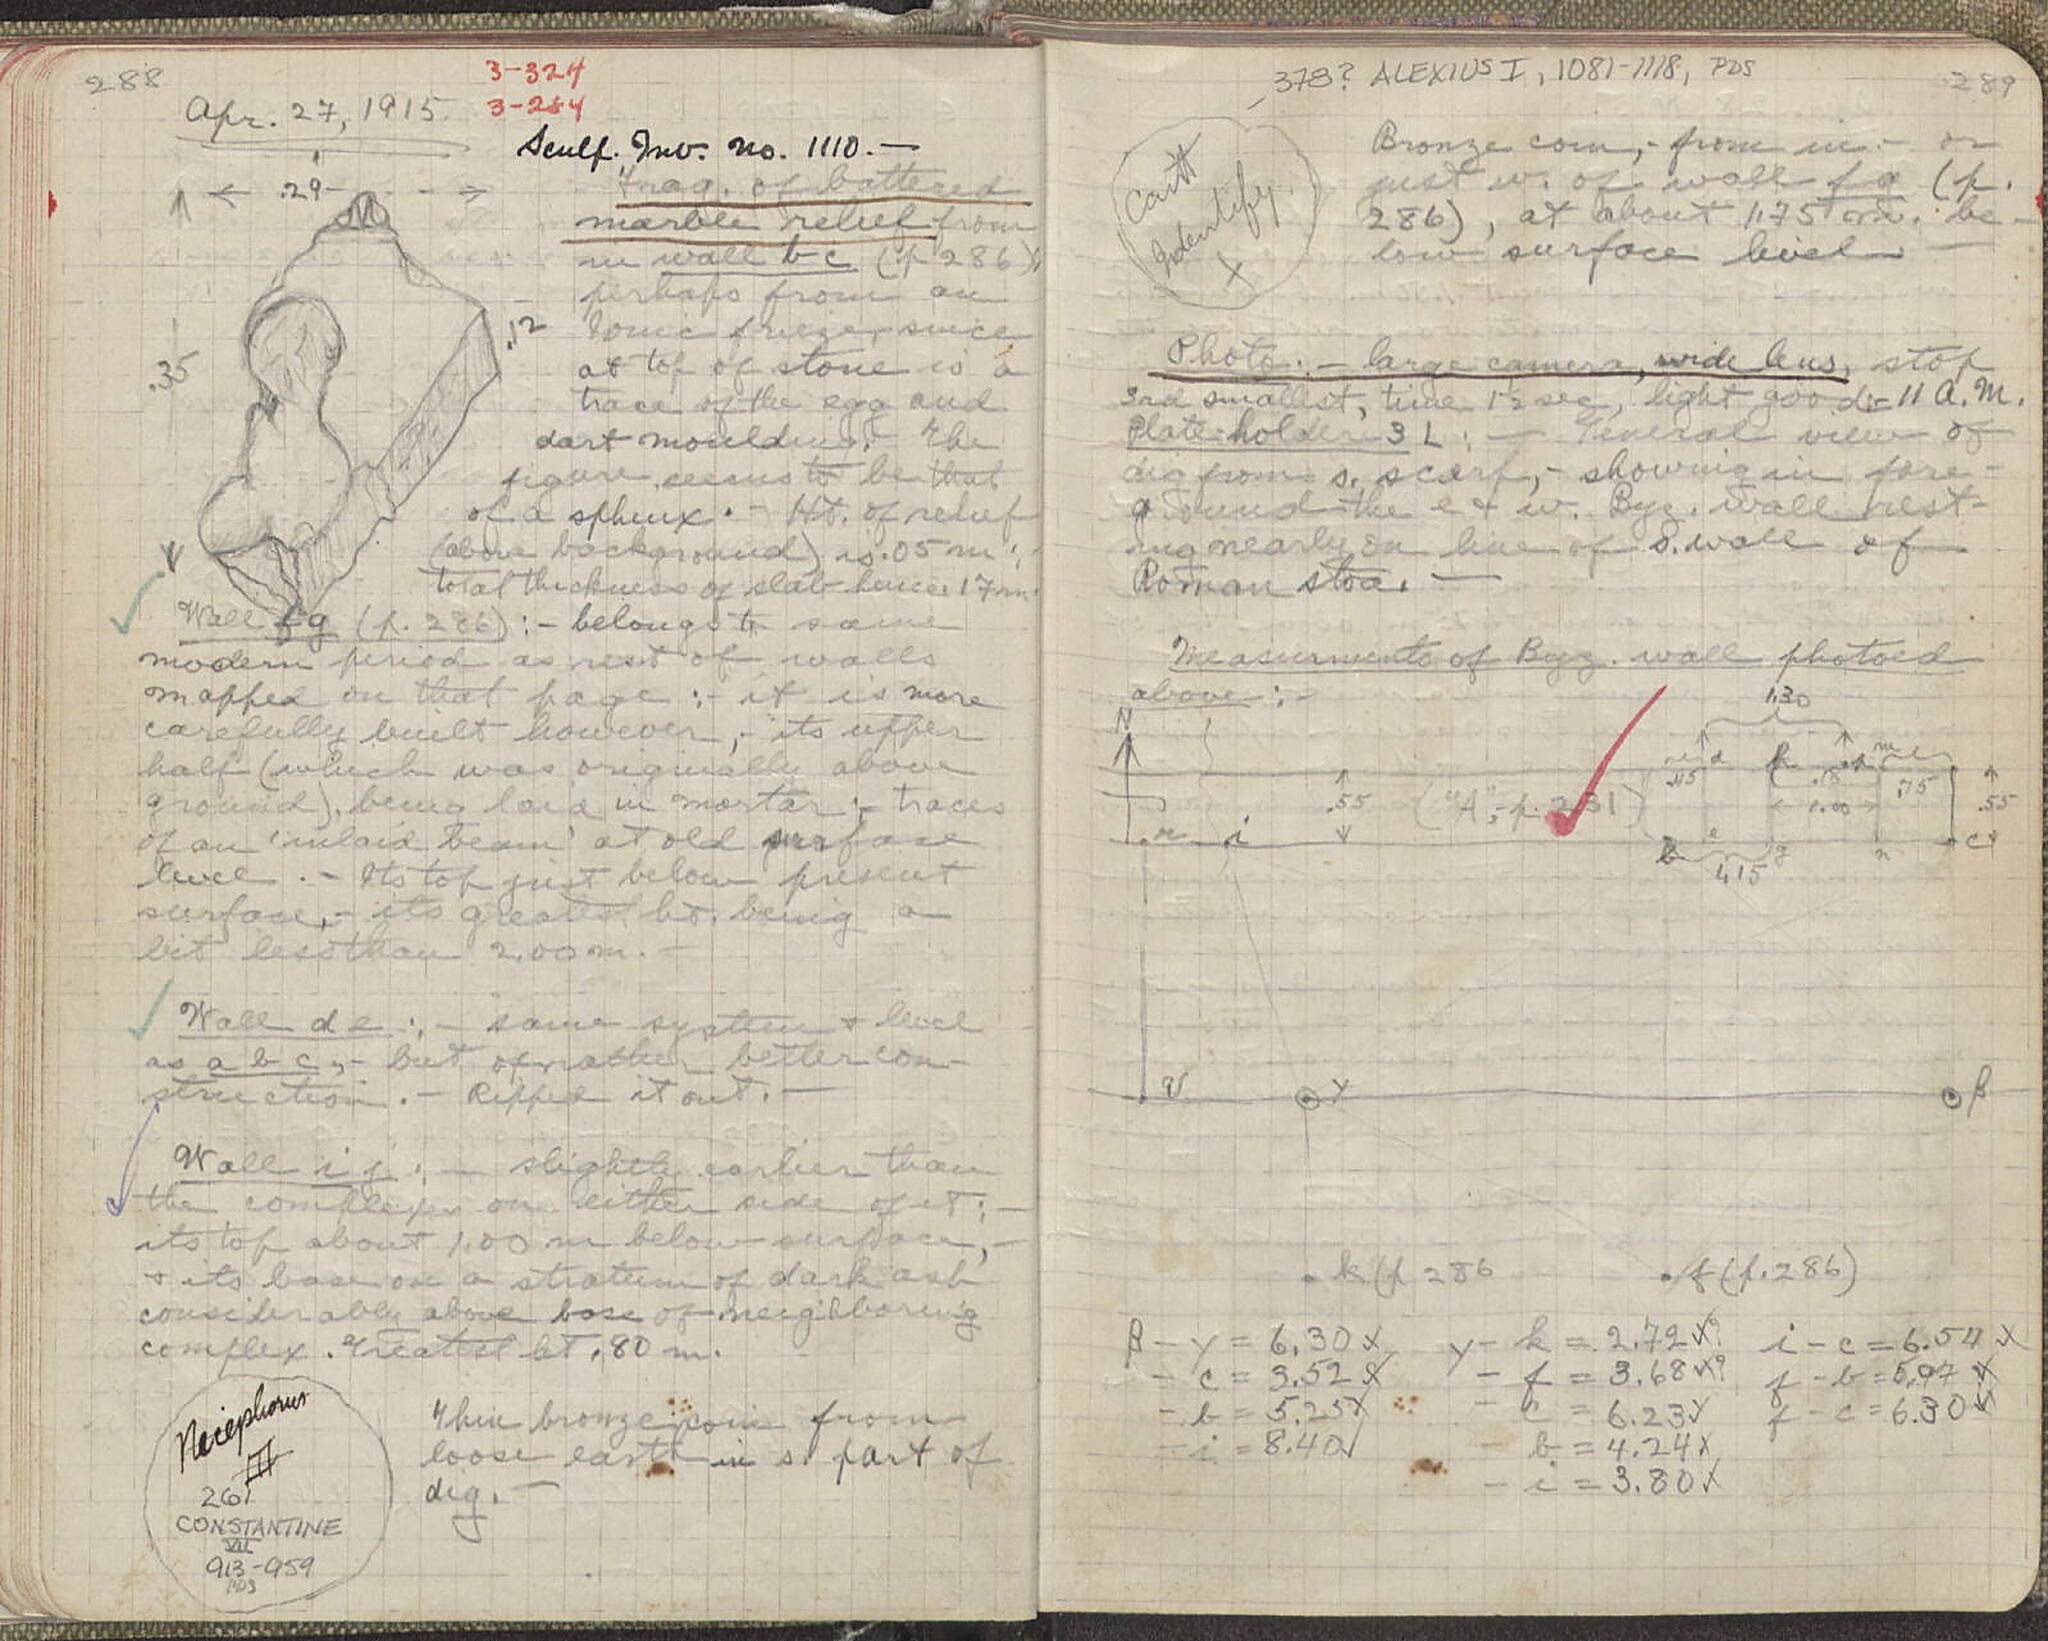 288
Apr. 27, 1915
3-324
3-284
Sculp. Inv. No. 1110.—
Frag. of battered
marble relief from
in wall bc (p 286);
perhaps from an
Ionic frieze, since
at top of stone is a
trace of the egg and
dart moulding.- The
figure seems to be that
of a sphinx.- Ht. of relief
(above background) is .05 m;-
total thickness of slab hence .17 m.
.29
.35
.12
Wall fg (p. 286):- belongs to same
modern period as rest of walls
mapped on that page:- it is more
carefully built however,- its upper
half (which was originally above
ground), being laid in mortar;- traces
of an 'inlaid beam' at old surface
level.- Its top just below present
surface,- its greatest ht. being a
bit less than 2.00 m.-
Wall de:,- same system + level
as abc,- but of rather better con-
struction.- Ripped it out.-
Wall ij:- slightly earlier than
the complexes on either side of it;-
its top about 1.00 m below surface,-
+ its base on a stratum of dark ash
considerably above base of neighboring
complex. Greatest ht .80 m.
Nicephorus
III
261
CONSTANTINE
VII
913-959
PDS
Thin bronze coin from
loose earth in s. part of
dig.-
378? ALEXIUS I, 1081-1118, PDS
289
Can't
Identify
X
Bronze coin,- from in - or
just w. of wall fg (p.
286), at about 1.75 m. be-
low surface level-
Photo:- large camera, wide lens, stop
3rd smallest, time 1½ sec, light good- 11 A.M.
Plate holder 3 L:- General view of
dig from s. scarp,- showing in fore-
ground the e + w. Byz. wall rest-
ing nearly on line of S. wall of
Roman stoa.-
Measurments of Byz. wall photoed
above:-
N
1.30
.45 d k .18 m .75
.55 ("A",- p. 231) 1.00 .55
i b e g n c
4.15
γ β
k (p 286 f (p. 286)
β - γ = 6.30 x γ - k = 2.72 x? i - c = 6.54 x
- c = 3.52 x - f = 3.68 x? f - b = 5.97 x
- b = 5.25 x - c = 6.23 x f - c = 6.30 x
- i = 8.40 - b = 4.24 x
- i = 3.80 x